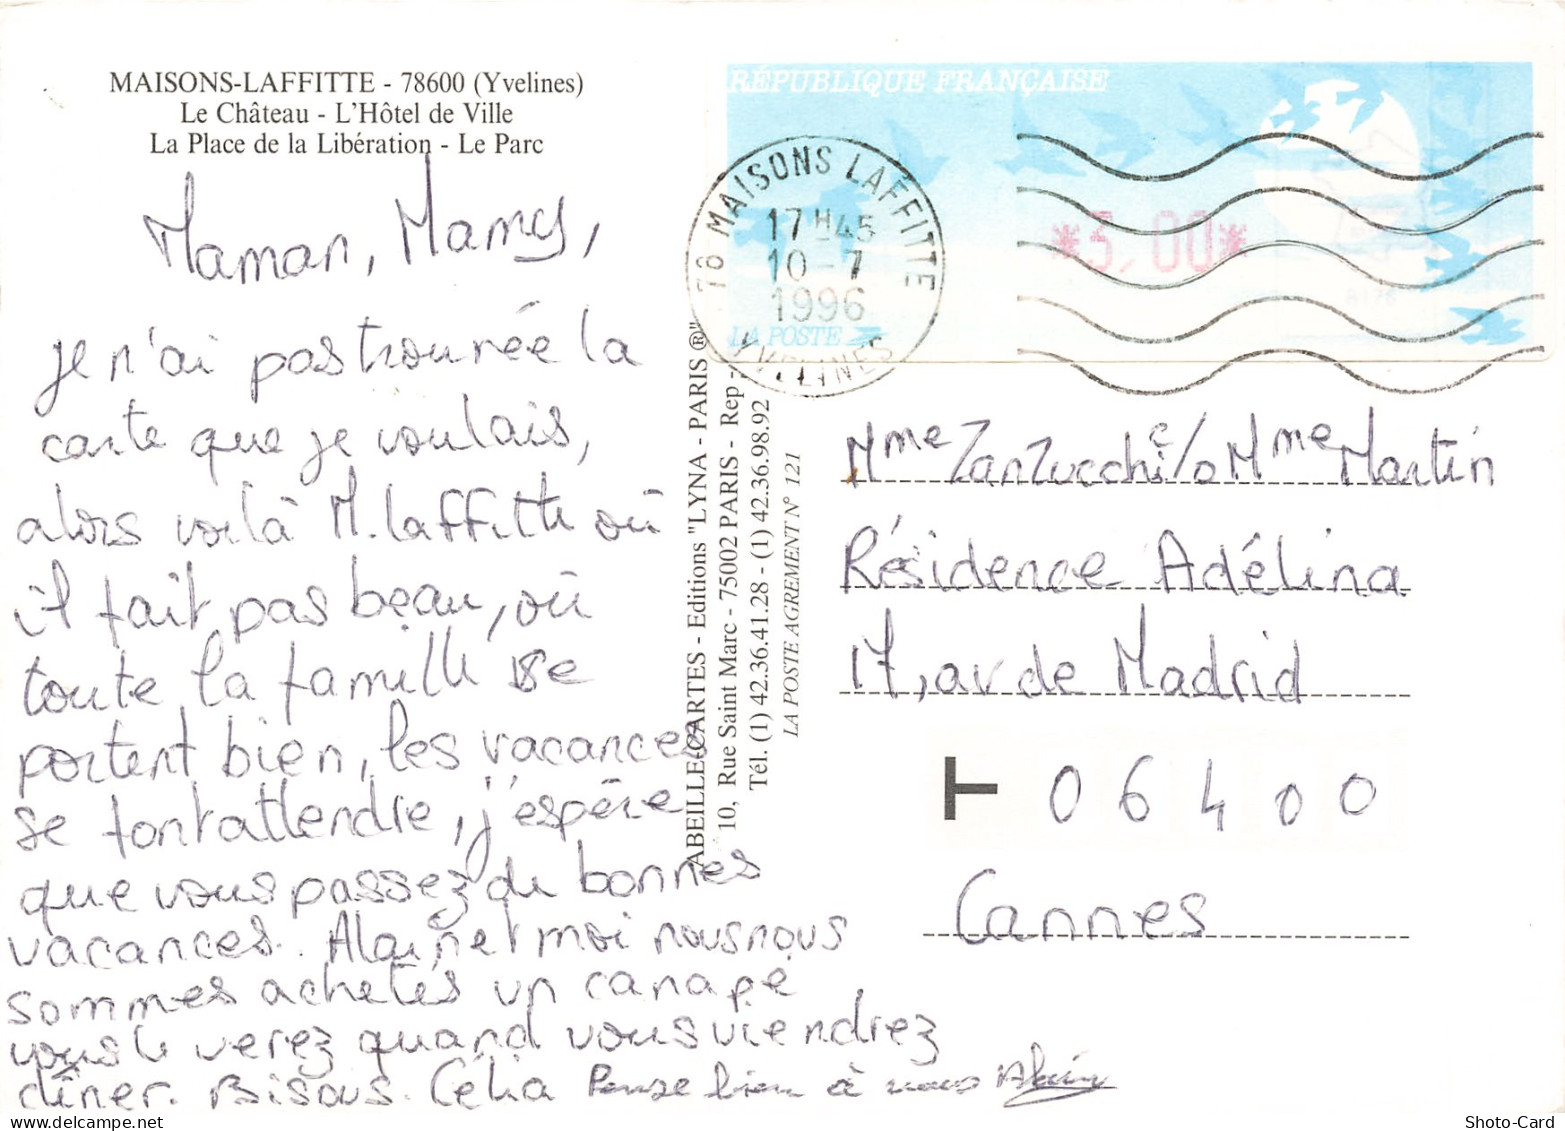 MAISONS-LAFFITTE - 78600 (Yvelines)
Le Château - L'Hôtel de Ville
La Place de la Libération - Le Parc
Maman, Mamy,
je n'ai pas trouvée la
carte que je voulais,
alors voilà M. Laffitte où
il fait pas beau, où
toute la famille se
portent bien, les vacances
se font attendre, j'espère
que vous passez de bonnes
vacances. Alain et moi nous nous
sommes achetés un canapé
vous le verez quand vous viendrez
dîner. Bisous. Célia Pense bien à vous Alain
ABEILLE-CARTES - Editions "LYNA - PARIS ®"
10, Rue Saint Marc - 75002 PARIS - Rep -
Tél. (1) 42.36.41.28 - (1) 42.36.98.92
LA POSTE AGREMENT N° 121
RÉPUBLIQUE FRANÇAISE
*3,00*
LA POSTE
78 MAISONS LAFFITTE
17H45
10-7
1996
YVELINES
Mme Zanzucchi c/o Mme Martin
Résidence Adélina
17, av de Madrid
T 06400
Cannes
Shoto-Card